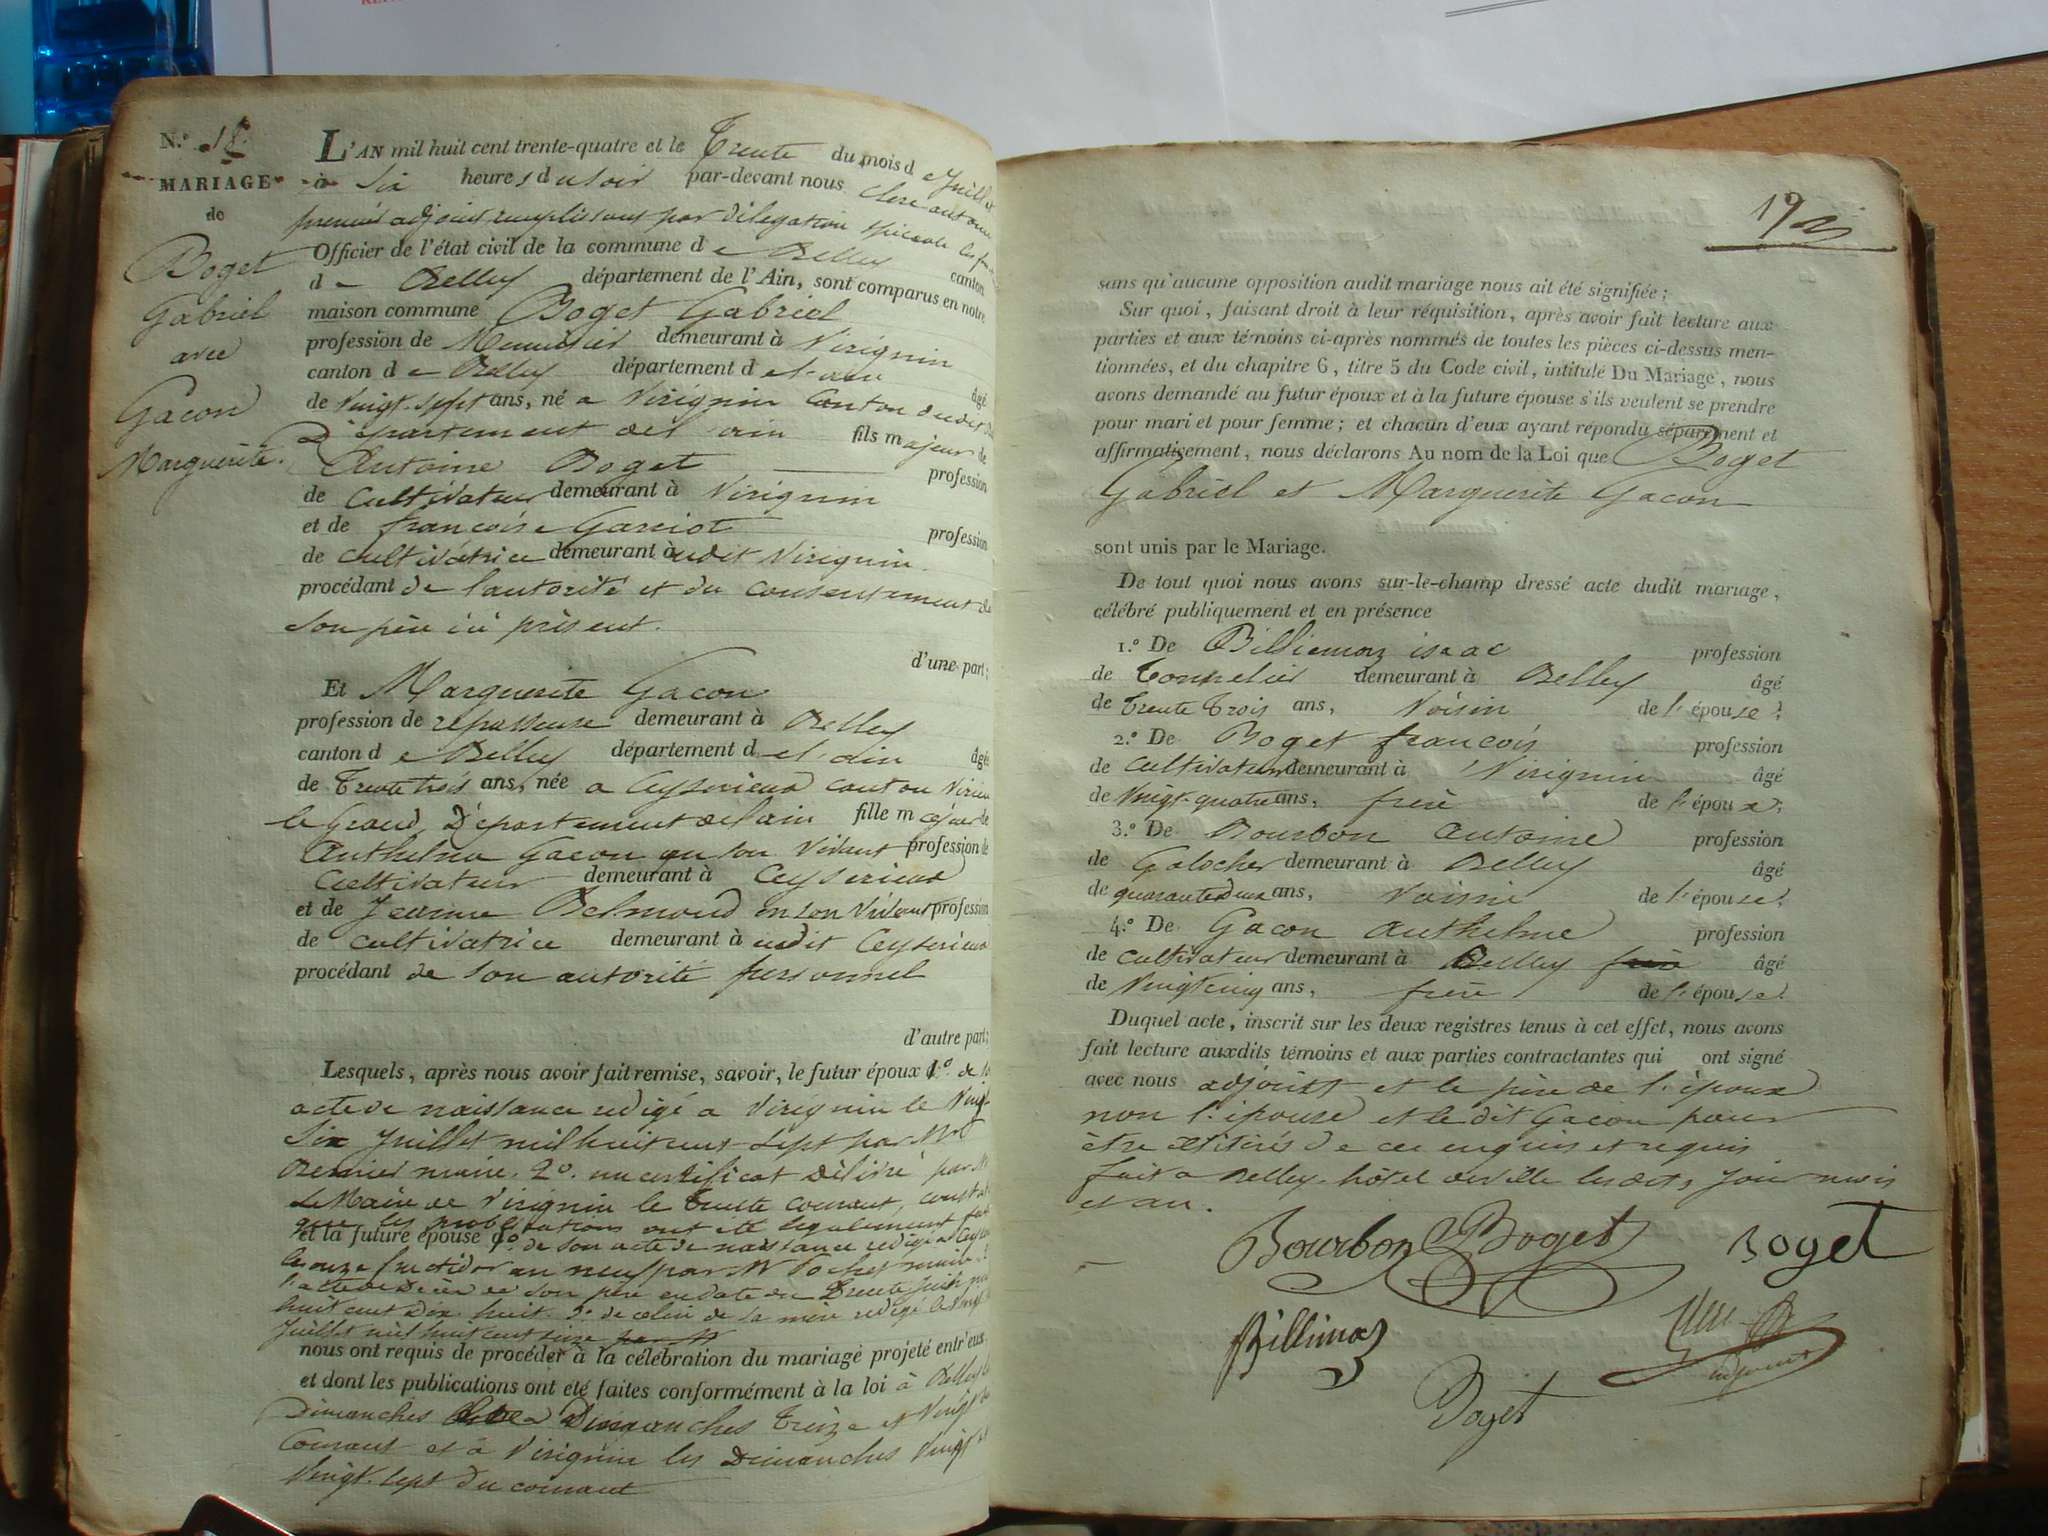 N.º 18.
MARIAGE
de
Boget
Gabriel
avec
Gacon
Marguerite.
L'AN mil huit cent trente-quatre et le Trente du mois de Juillet
à Six heures du soir par-devant nous Clerc antoine
premier adjoint remplissant par délégation spéciale les
Officier de l'état civil de la commune de Belley canton
de Belley département de l'Ain, sont comparus en notre
maison commune Boget Gabriel
profession de Menuisier demeurant à Virignin
canton de Belley département de l'ain âgé
de Vingt-Sept ans, né a Virignin Canton dudit
Département de l'ain fils majeur de
Antoine Boget profession
de Cultivateur demeurant à Virignin
et de françoise Garciot profession
de Cultivatrice demeurant à udit Virignin
procédant de l'autorité et du Consentement de
Son père ici présent.
d'une part;
Et Marguerite Gacon
profession de repasseuse demeurant à Belley
canton de Belley département de l'ain âgée
de Trente trois ans, née a Ceyserieux canton Virieu
le Grand, Département de l'ain fille majeure de
Anthelme Gacon en son Vivant profession de
Cultivateur demeurant à Ceyserieux
et de Jeanne Belmond en son Vivant profession
de Cultivatrice demeurant à udit Ceyserieux
procédant de son autorité personnel
d'autre part;
Lesquels, après nous avoir fait remise, savoir, le futur époux 1º. de son
acte de naissance redigé a Virignin le Vingt
Six Juillet mil huit cent Sept par Mr
maire. 2º. un certificat délivré par Mr
Le Maire de Virignin le Trente Courant, constat
que les publications ont été légalement
et la future épouse 1º. de son acte de naissance redigé a
le onze fructidor an neuf par Mr maire
l'acte de Décès de son père en date du Trente Juin mil
huit cent Dix huit. 3º de celui de sa mère redigé le
Juillet mil huit cent
nous ont requis de procéder à la célébration du mariage projeté entr'eux,
et dont les publications ont été faites conformément à la loi à Belley les
Dimanches Dimanches Treize et Vingt du
Courant et à Virignin les Dimanches Vingt et
Vingt-Sept du courant
19
sans qu'aucune opposition audit mariage nous ait été signifiée;
Sur quoi, faisant droit à leur réquisition, après avoir fait lecture aux
parties et aux témoins ci-après nommés de toutes les pièces ci-dessus men-
tionnées, et du chapitre 6, titre 5 du Code civil, intitulé Du Mariage, nous
avons demandé au futur époux et à la future épouse s'ils veulent se prendre
pour mari et pour femme; et chacun d'eux ayant répondu séparément et
affirmativement, nous déclarons Au nom de la Loi que Boget
Gabriel et Marguerite Gacon
sont unis par le Mariage.
De tout quoi nous avons sur-le-champ dressé acte dudit mariage,
célébré publiquement et en présence
1.º De Billiemaz isaac profession
de Tonnelier demeurant à Belley âgé
de Trente Trois ans, Voisin de l'épouse;
2.º De Boget françois profession
de Cultivateur demeurant à Virignin âgé
de Vingt-quatre ans, frère de l'époux;
3.º De Bourbon antoine profession
de Galocher demeurant à Belley âgé
de quarante deux ans, Voisin de l'épouse;
4.º De Gacon anthelme profession
de Cultivateur demeurant à Belley frère âgé
de Vingt cinq ans, frère de l'épouse.
Duquel acte, inscrit sur les deux registres tenus à cet effet, nous avons
fait lecture auxdits témoins et aux parties contractantes qui ont signé
avec nous adjoint et le père de l'époux
non l'épouse et le dit Gacon pour
être illitérés de ce enquis et requis
fait a Belley hôtel de ville les dits Jour mois
et an.
Bourbon Boget Boget
Billimaz
Clerc
adjoint
Boget